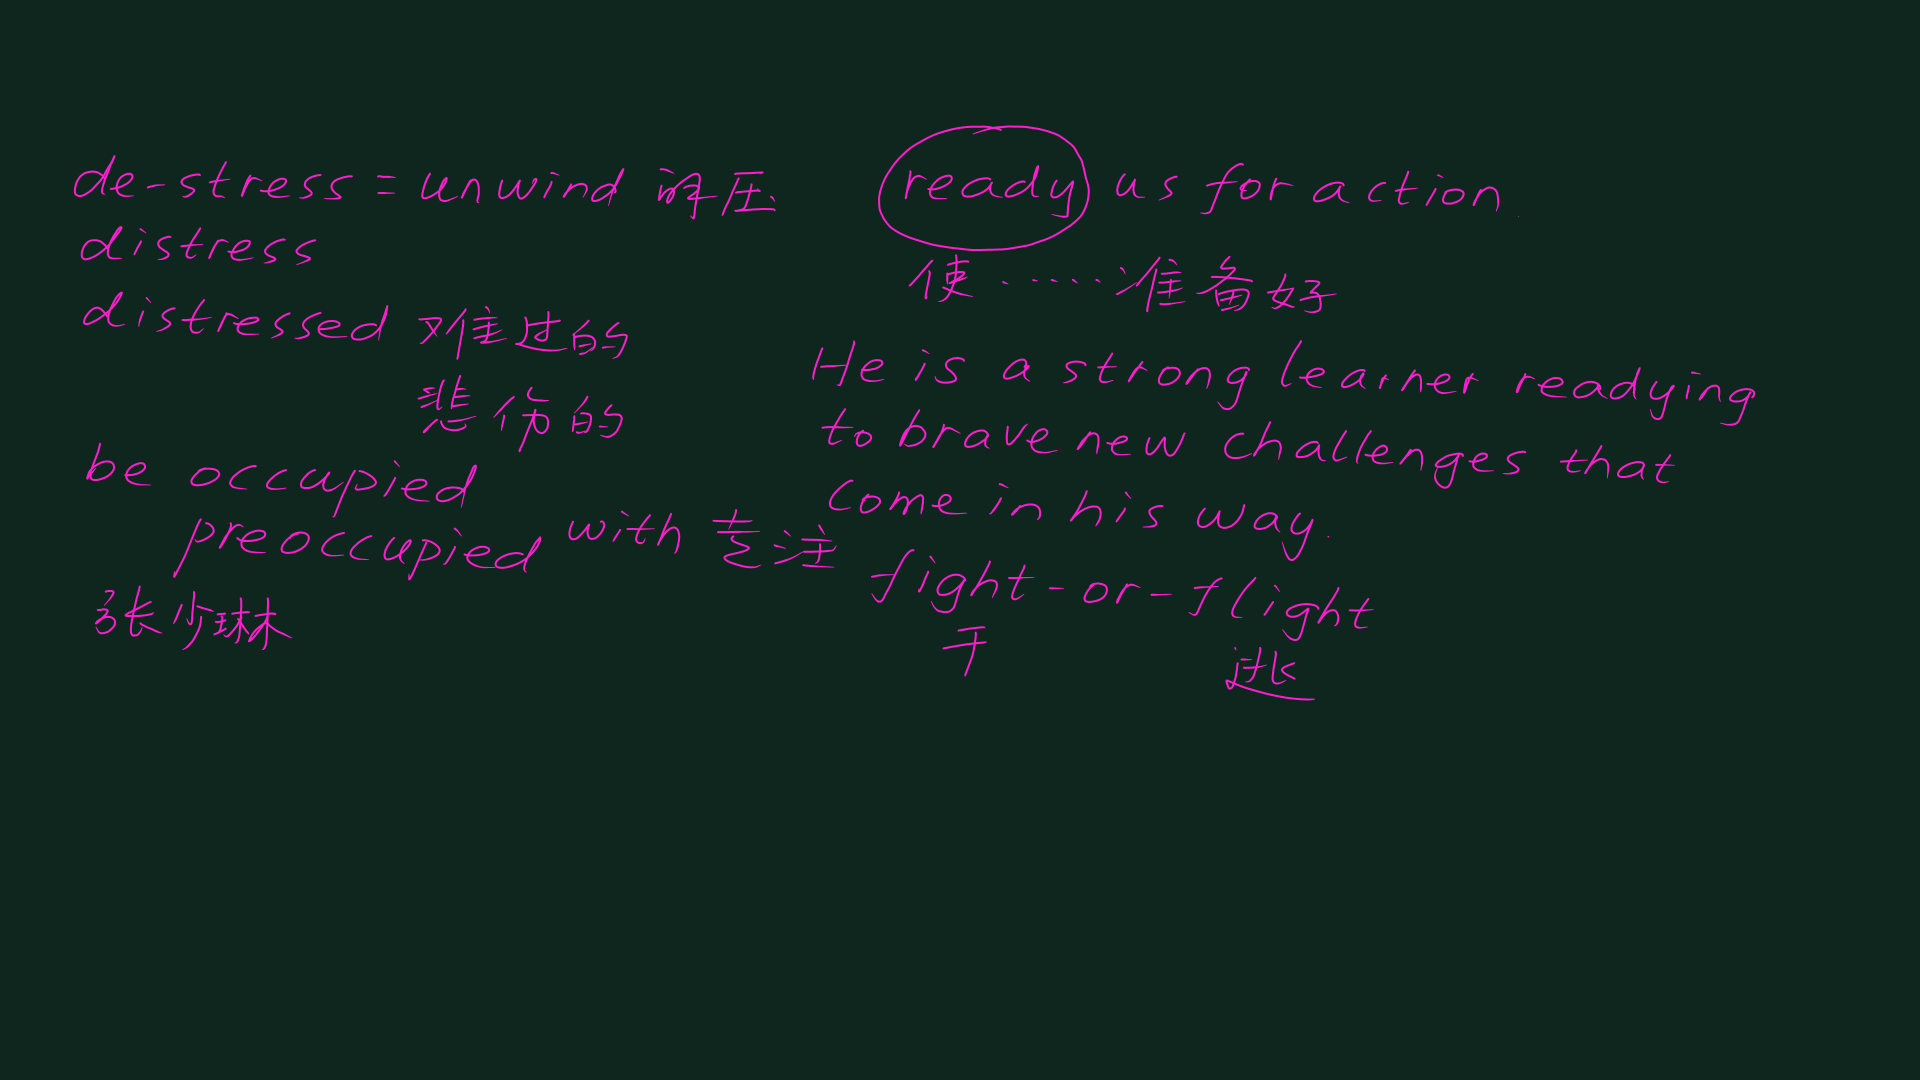 de-stress = unwind 解压
distress
distressed 难过的
悲伤的
be occupied
preoccupied with 专注
张少琳
ready us for action.
使……准备好
He is a strong learner readying
to brave new challenges that
come in his way.
fight-or-flight
干